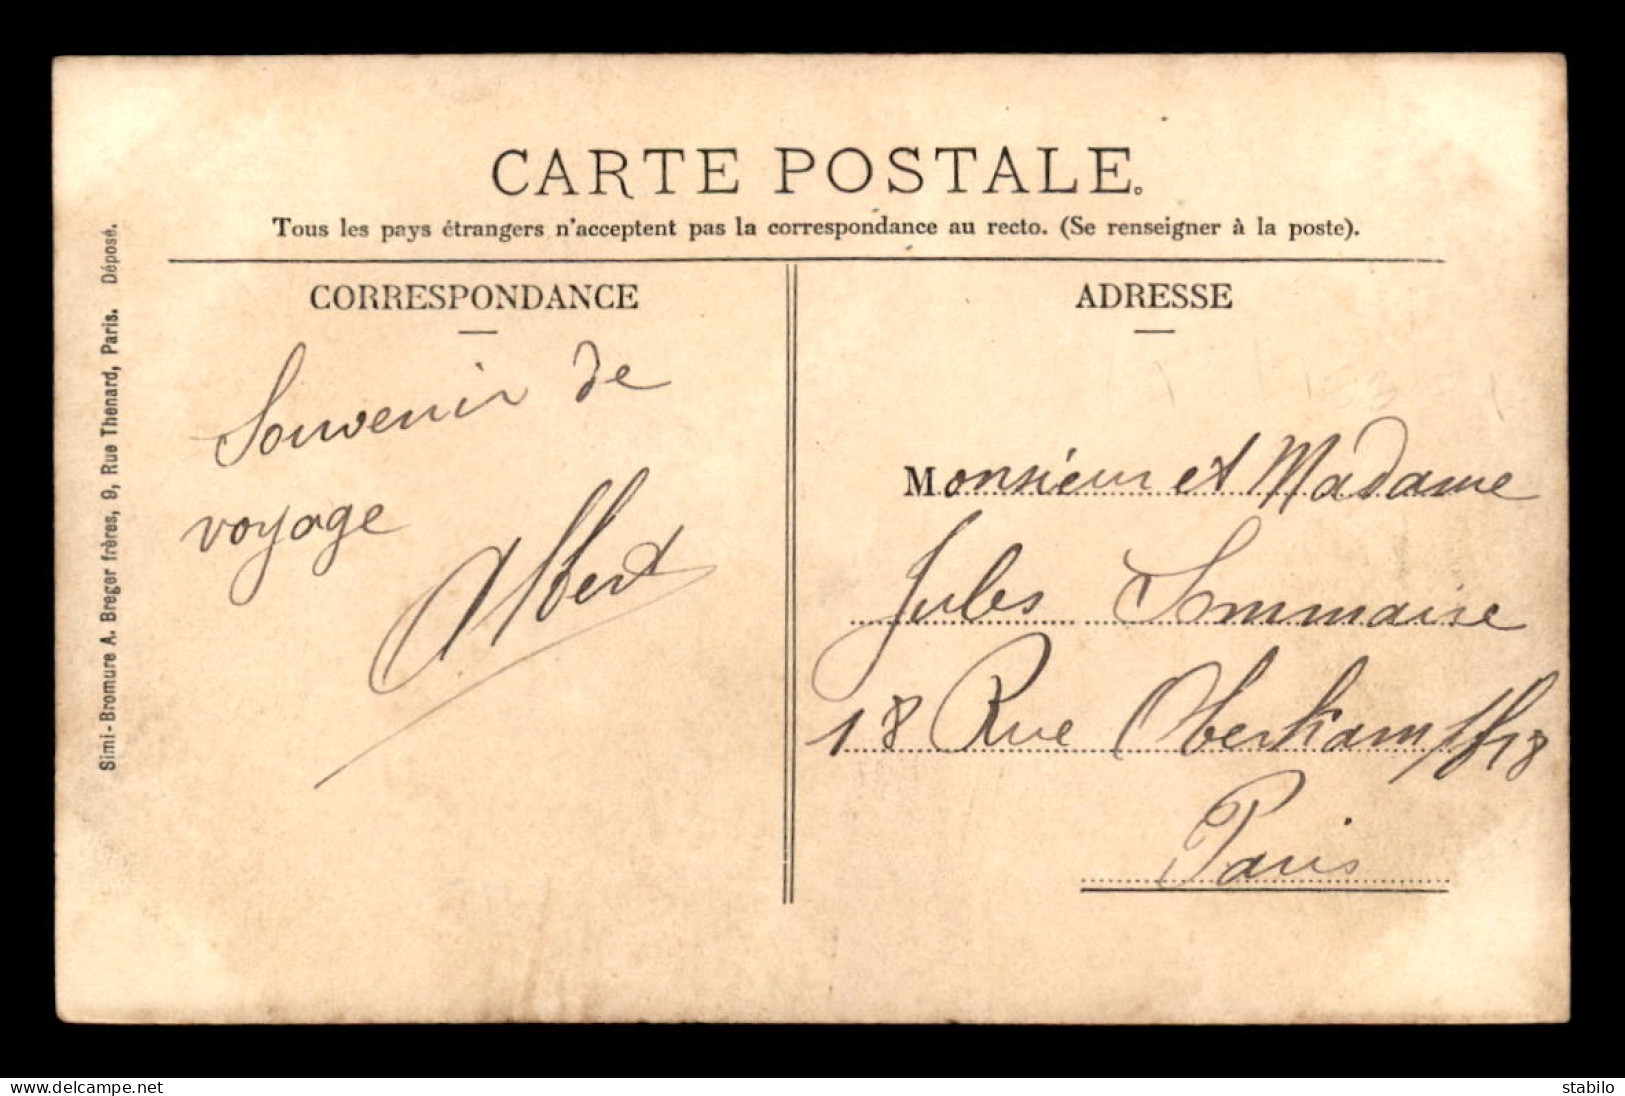 CARTE POSTALE.
Tous les pays étrangers n'acceptent pas la correspondance au recto. (Se renseigner à la poste).
CORRESPONDANCE
Souvenir de
voyage
Albert
ADRESSE
Monsieur et Madame
Jules Sommaire
18 Rue Oberkampf 18
Paris
Simi-Bromure A. Breger frères, 9, Rue Thenard, Paris. Déposé.
www.delcampe.net
stabilo